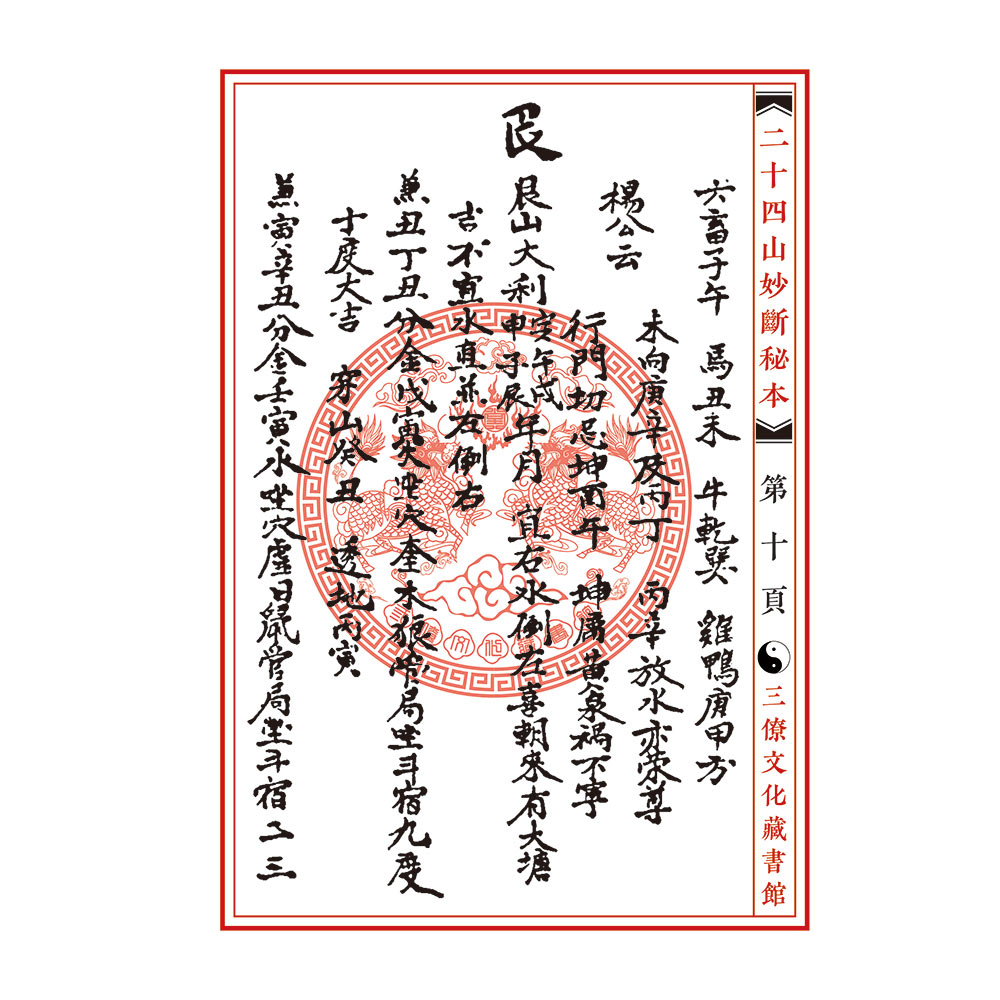 二十四山妙斷秘本
第十頁
三僚文化藏書館
六畜子午 馬丑未 牛乾巽 雞鴨庚甲方
楊公云
未向庚辛及丙丁 丙辛放水亦榮尊
行門切忌坤酉午 坤庚黃泉禍不寧
艮
艮山大利寅午戌申子辰年月 宜右水倒左喜朝來有大塘
吉不宜水直並左倒右
兼丑丁丑分金戊寅火坐穴奎木狼常局坐斗宿九度
十度大吉 穿山癸丑 透地丙寅
兼寅辛丑分金壬寅水坐穴虛日鼠管局坐斗宿二三